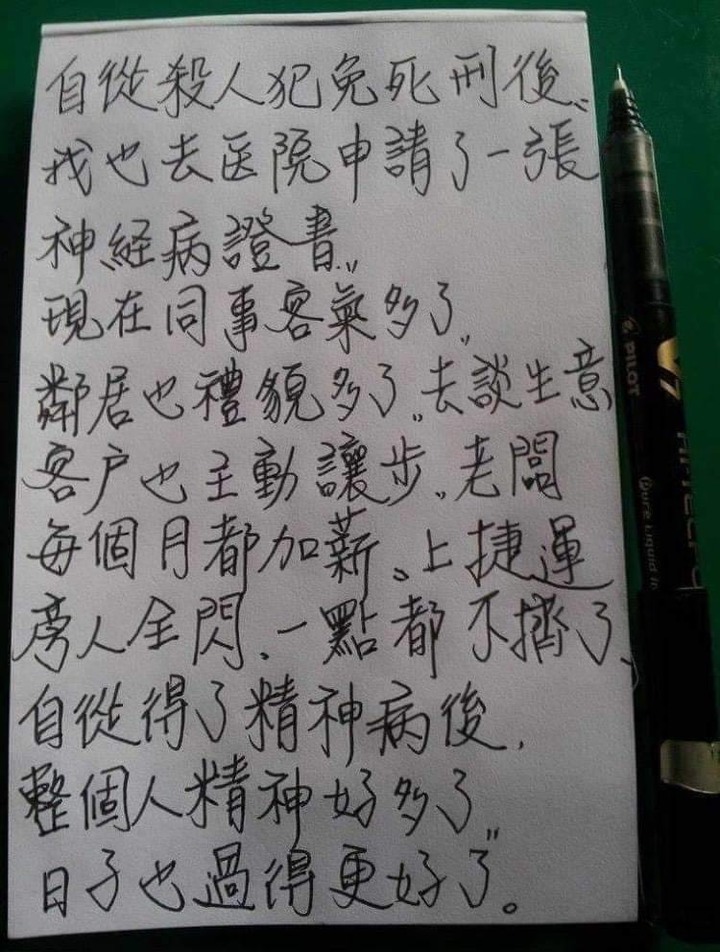 自從殺人犯免死刑後,,
我也去医院申請了一張
神経病證書,,
現在同事客氣多了,,
鄰居也禮貌多了,,去談生意
客户也主動讓步,,老闆
每個月都加薪。上捷運
旁人全閃、一點都不擠了、
自從得了精神病後,
整個人精神好多了,,
日子也過得更好了。
PILOT
V7
Pure Liquid In